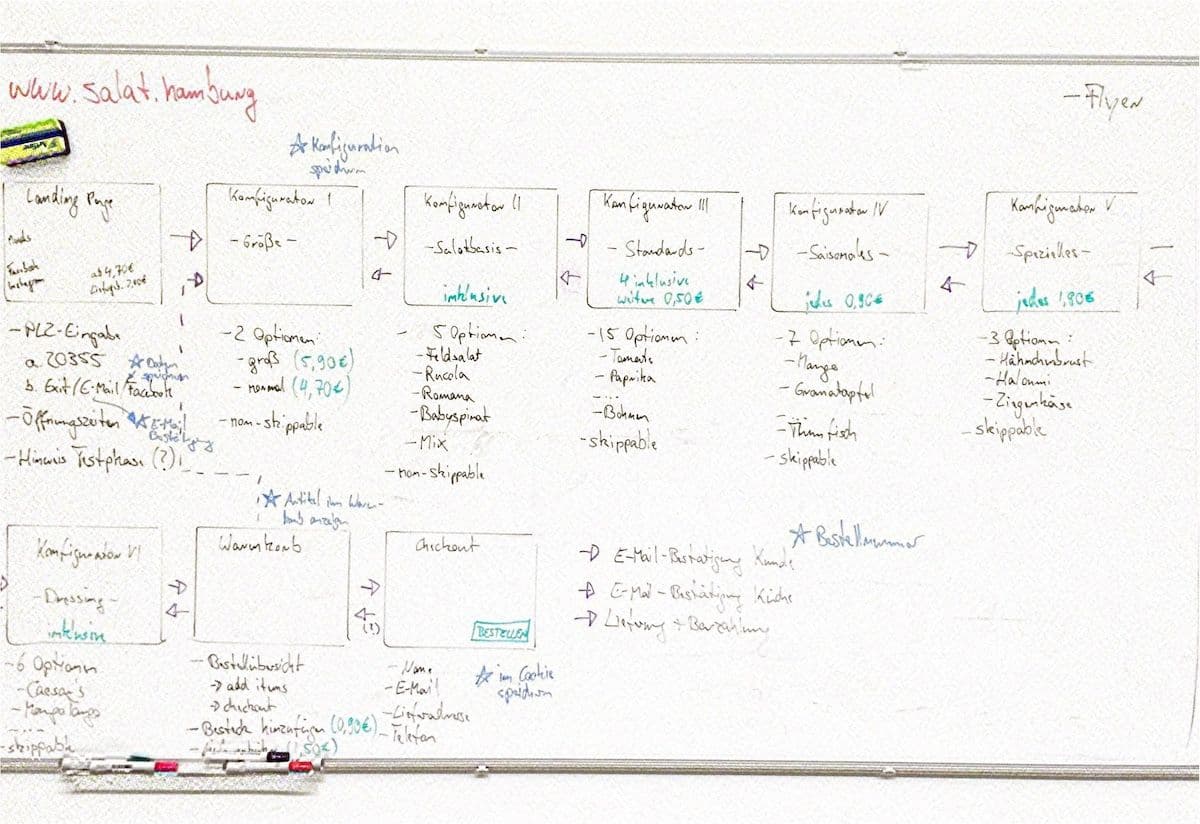 www.salat.hamburg
- Flyer
☆ Konfiguration
speichern
Landing Page
Facebook
Instagram
ab 4,70€
Konfigurator I
- Größe -
Konfigurator II
- Salatbasis -
inklusive
Konfigurator III
- Standards -
4 inklusive
weitere 0,50€
Konfigurator IV
- Saisonales -
jedes 0,90€
Konfigurator V
- Spezielles -
jedes 1,90€
- PLZ-Eingabe
a. 20355
b. Exit/E-Mail/Facebook
☆ Daten
speichern
- Öffnungszeiten
☆ E-Mail
Bestätigung
- Hinweis Testphase (?)
- 2 Optionen:
- groß (5,90€)
- normal (4,70€)
- non-skippable
- 5 Optionen:
- Feldsalat
- Rucola
- Romana
- Babyspinat
- Mix
- non-skippable
- 15 Optionen:
- Tomate
- Paprika
....
- Bohnen
- skippable
- 7 Optionen:
- Mango
- Granatapfel
....
- Thunfisch
- skippable
- 3 Optionen:
- Hähnchenbrust
- Halloumi
- Ziegenkäse
- skippable
☆ Artikel im Waren-
korb anzeigen
Konfigurator VI
- Dressing -
inklusive
Warenkorb
Checkout
BESTELLEN
(?)
→ E-Mail-Bestätigung Kunde
→ E-Mail-Bestätigung Küche
→ Lieferung + Barzahlung
☆ Bestellnummer
- 6 Optionen
- Caesar's
....
- skippable
- Bestellübersicht
→ add items
→ checkout
- Besteck hinzufügen (0,90€)
- Name
- E-Mail
- Lieferadresse
- Telefon
☆ im Cookie
speichern